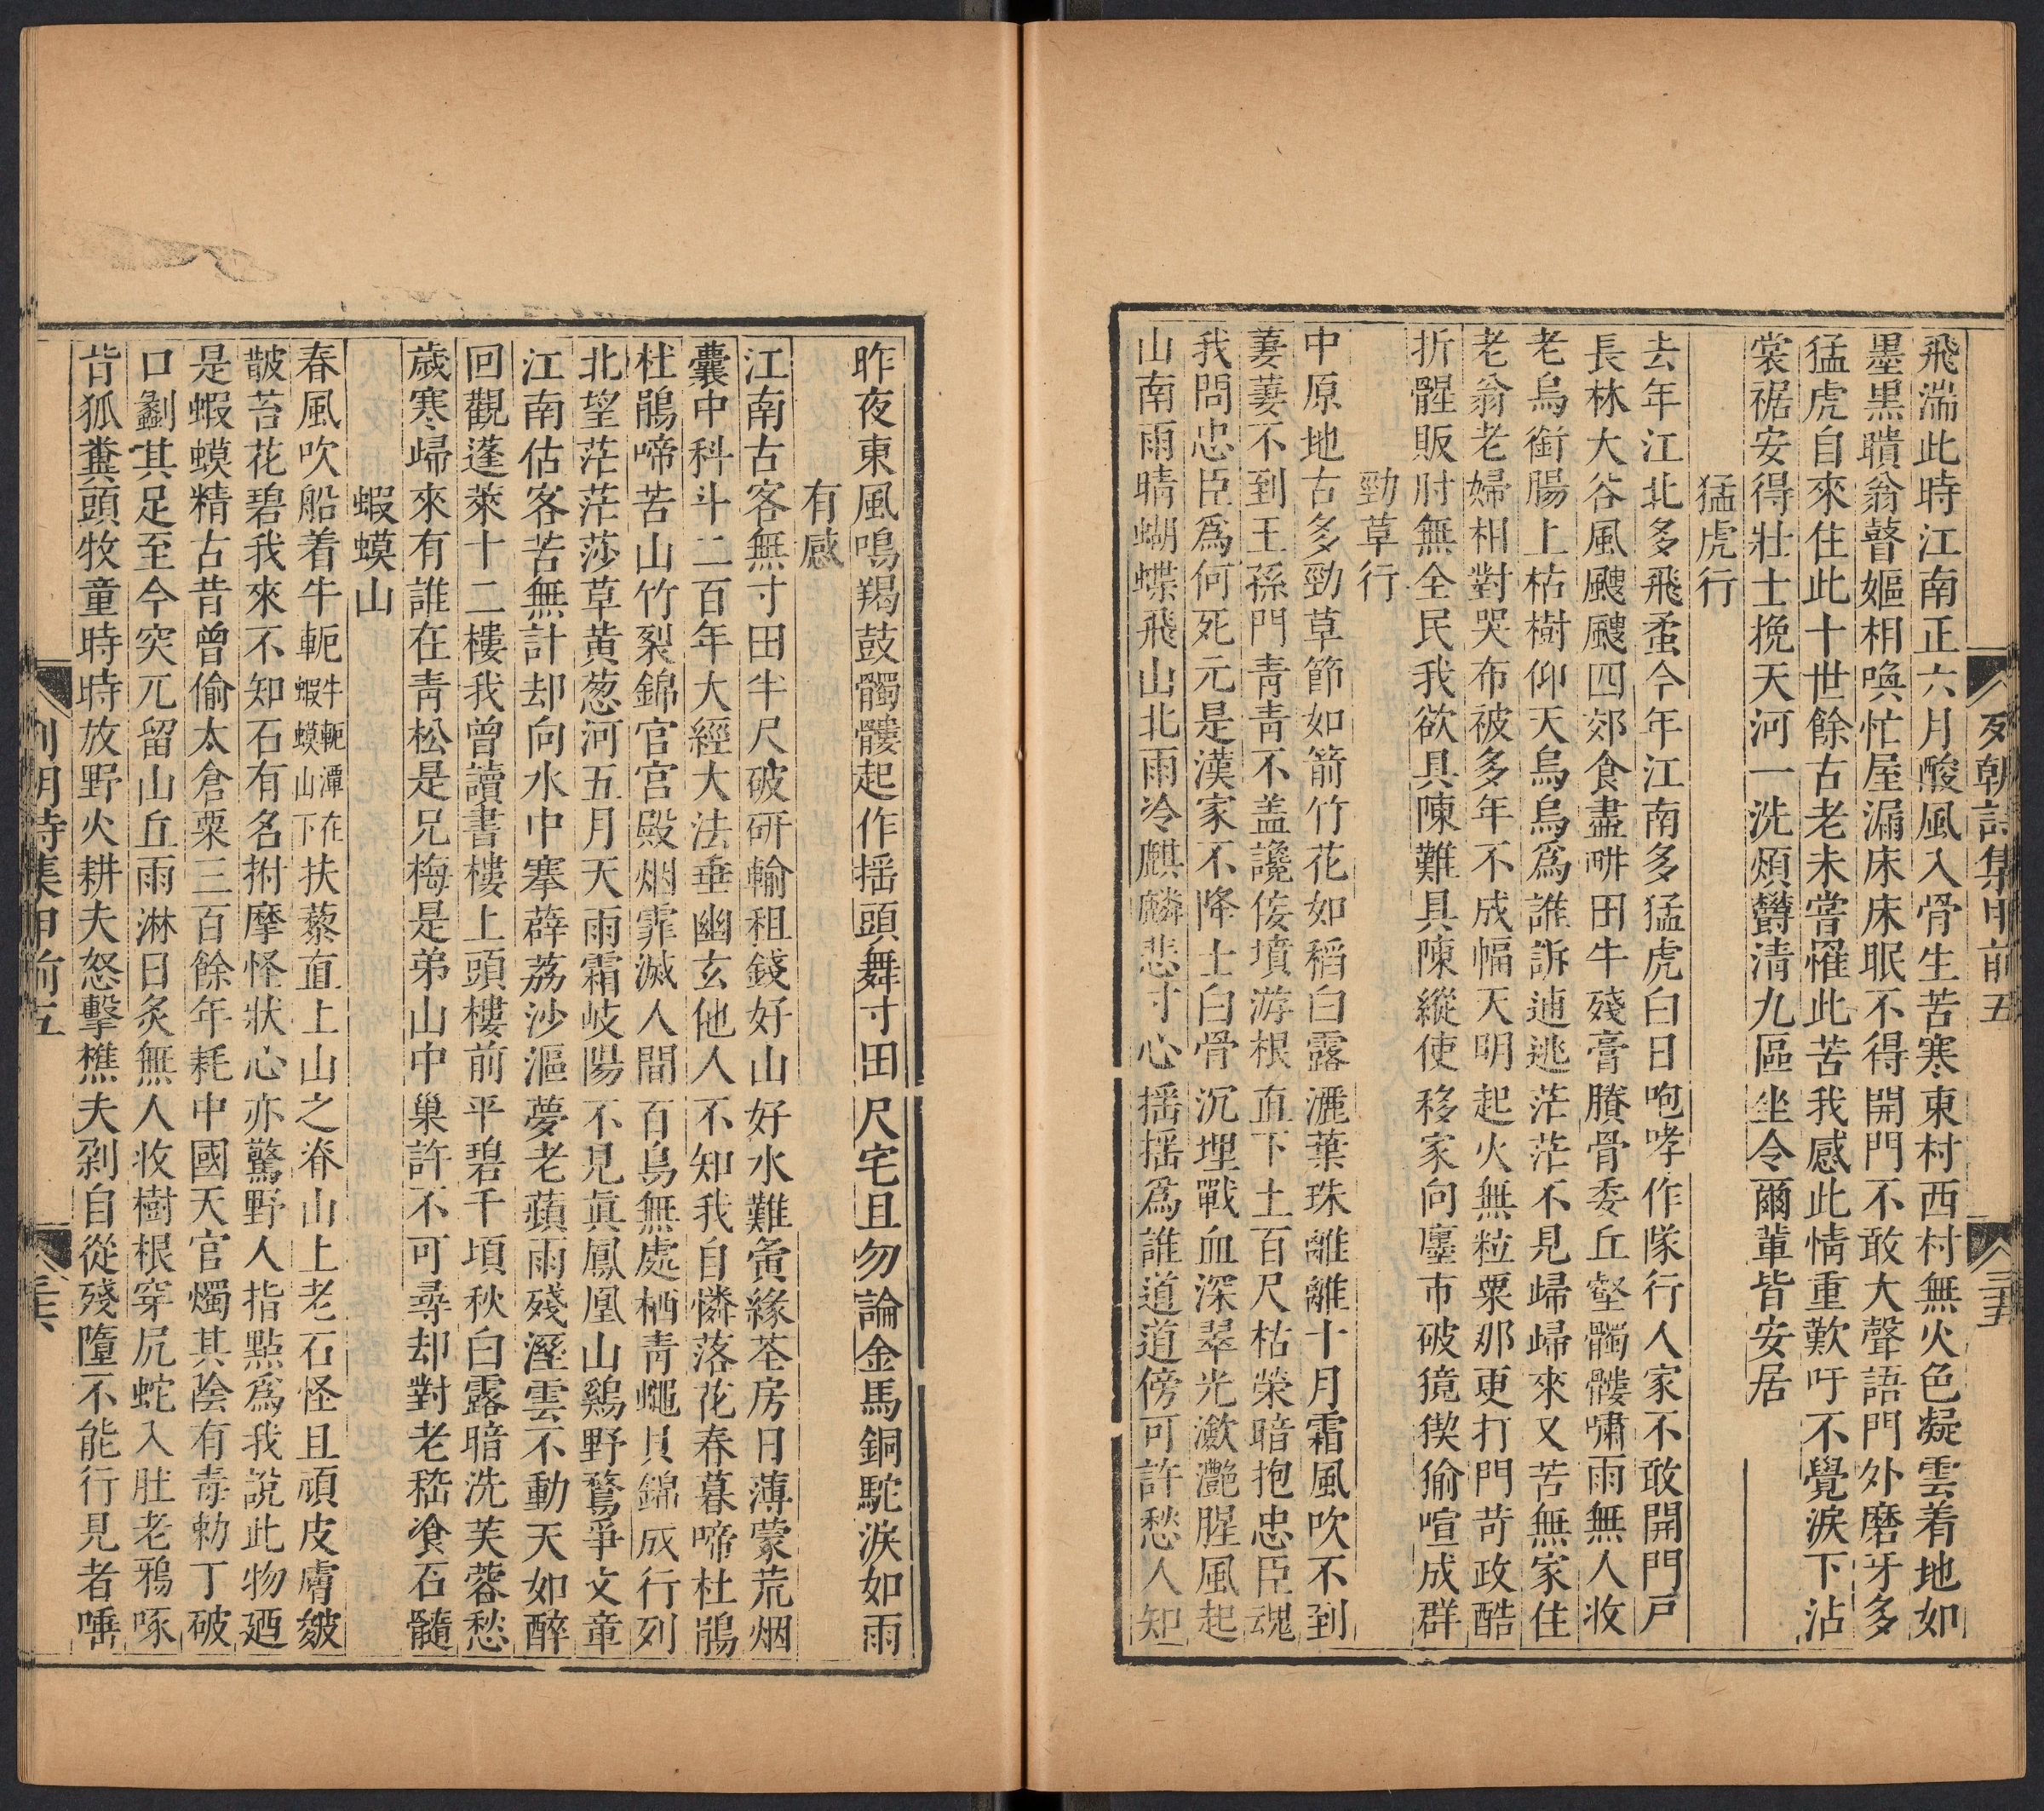 列朝詩集甲前五
三十五
飛湍此時江南正六月酸風入骨生苦寒東村西村無火色凝雲着地如
墨黒聵翁瞽嫗相喚忙屋漏床床眠不得開門不敢大聲語門外磨牙多
猛虎自來住此十世餘古老未嘗罹此苦我感此情重歎吁不覺淚下沾
裳裾安得壯士挽天河一洗煩鬱清九區坐令爾軰皆安居
猛虎行
去年江北多飛蝗今年江南多猛虎白日咆哮作隊行人家不敢開門戸
長林大谷風颼颼四郊食盡畊田牛殘膏賸骨委丘壑髑髏嘯雨無人收
老烏銜腸上枯樹仰天烏烏爲誰訴逋逃茫茫不見歸歸來又苦無家住
老翁老婦相對哭布被多年不成幅天明起火無粒粟那更打門苛政酷
折脛販肘無全民我欲具陳難具陳縱使移家向鄽市破獍猰㺄喧成群
勁草行
中原地古多勁草節如箭竹花如稻白露灑葉珠離離十月霜風吹不到
萋萋不到王孫門青青不盖讒佞墳游根直下土百尺枯榮暗抱忠臣魂
我問忠臣爲何死元是漢家不降士白骨沉埋戰血深翠光瀲灧腥風起
山南雨晴蝴蝶飛山北雨冷麒麟悲寸心揺揺爲誰道道傍可許愁人知
昨夜東風鳴羯鼓髑髏起作揺頭舞寸田尺宅且勿論金馬銅駝淚如雨
有感
江南古客無寸田半尺破硏輸租錢好山好水難夤緣荃房日薄蒙荒烟
囊中科斗二百年大經大法垂幽玄他人不知我自憐落花春暮啼杜鵑
杜鵑啼苦山竹裂錦官官殿烟霏滅人間百鳥無處栖青蠅貝錦成行列
北望茫茫莎草黄葱河五月天雨霜岐陽不見眞鳳凰山鷄野鶩爭文章
江南估客苦無計却向水中搴薜茘沙漚夢老蘋雨殘溼雲不動天如醉
回觀蓬萊十二樓我曾讀書樓上頭樓前平碧千頃秋白露暗洗芙蓉愁
歳寒歸來有誰在青松是兄梅是弟山中巢許不可尋却對老嵇飡石髓
蝦蟆山
春風吹船着牛軛牛軛潭在蝦蟆山下扶藜直上山之脊山上老石怪且頑皮膚皴
皵苔花碧我來不知石有名拊摩怪狀心亦驚野人指點爲我說此物廼
是蝦蟆精古昔曾偷太倉粟三百餘年耗中國天官燭其陰有毒勅丁破
口劙其足至今突兀留山丘雨淋日炙無人收樹根穿尻蛇入肚老鴉啄
背狐糞頭牧童時時放野火耕夫怒擊樵夫剁自從殘隳不能行見者唾
列朝詩集甲前五
三十六